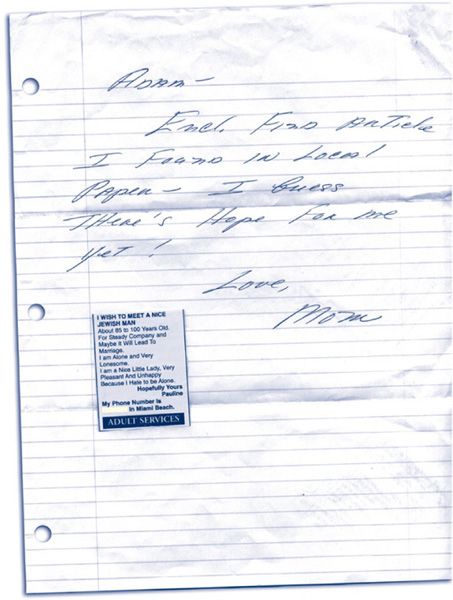 Adam—
Encl. Find Article
I Found in Local
Paper— I Guess
There's Hope For me
yet!
Love,
Mom
I WISH TO MEET A NICE
JEWISH MAN
About 85 to 100 Years Old.
For Steady Company and
Maybe It Will Lead To
Marriage.
I am Alone and Very
Lonesome.
I am a Nice Little Lady, Very
Pleasant And Unhappy
Because I Hate to be Alone.
Hopefully Yours
Pauline
My Phone Number is
In Miami Beach.
ADULT SERVICES